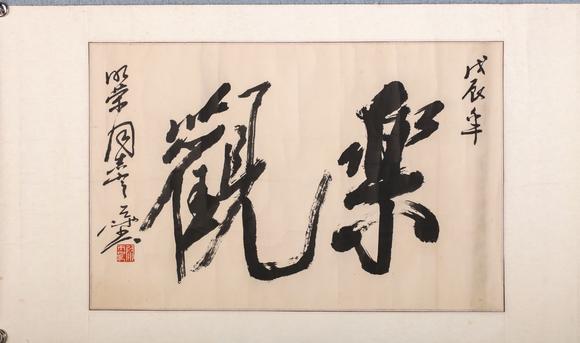 戊辰年
樂觀
明荣同志